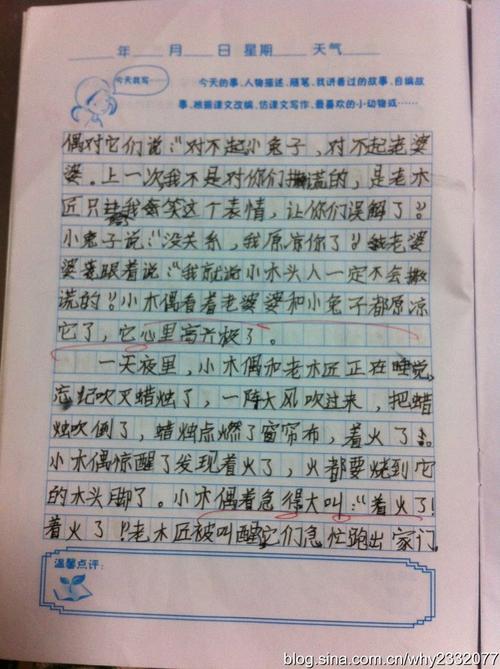 年 月 日 星期 天气
今天我写……
今天的事、人物描述、随笔、我讲着过的故事、自编故
事、根据课文改编、仿课文写作、最喜欢的小动物或……
偶对它们说："对不起小兔子，对不起老婆
婆。上一次我不是对你们撒谎的，是老木
匠只替我笑这个表情，让你们误解了。"
小兔子说："没关系，我原凉你了。"老婆
婆跟着说："我就说小木头人一定不会撒
谎的。"小木偶看着老婆婆和小兔子都原凉
它了，它心里高兴极了。
一天夜里，小木偶和老木匠正在睡觉。
忘记吹灭蜡烛了，一阵大风吹过来，把蜡
烛吹倒了，蜡烛点燃了窗帘布，着火了。
小木偶惊醒了发现着火了，火都要烧到它
的木头脚了。小木偶着急得大叫："着火了!
着火了!"老木匠被叫醒它们急忙跑出家门。
温馨点评：
blog.sina.com.cn/why2332077